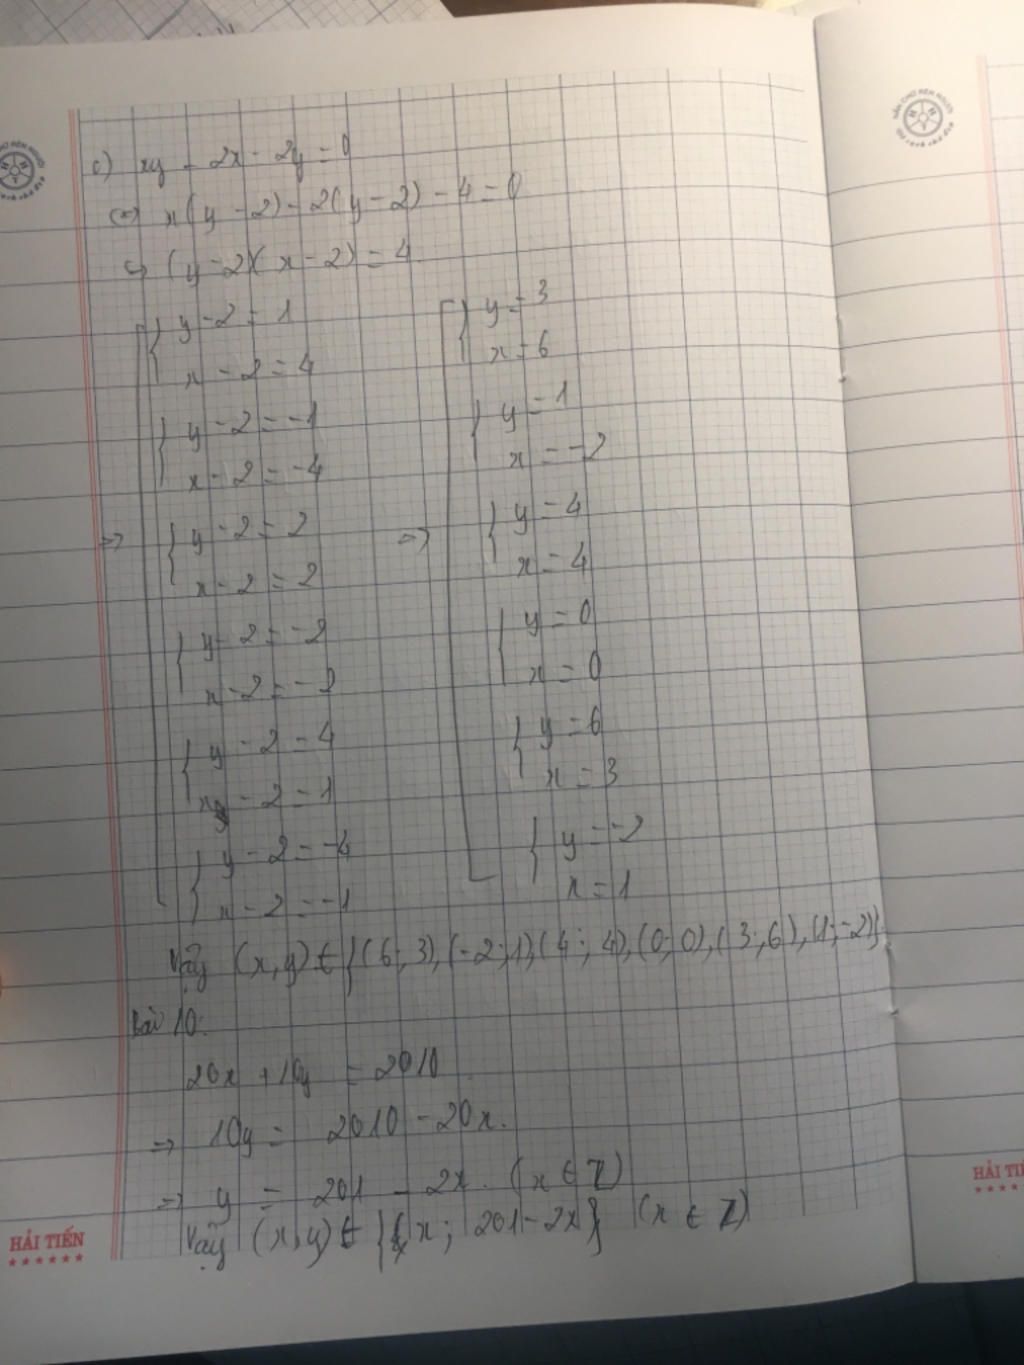 c) xy - 2x - 2y = 0
<=> x(y - 2) - 2(y - 2) - 4 = 0
<=> (y - 2)(x - 2) = 4
y - 2 = 1
x - 2 = 4
y - 2 = -1
x - 2 = -4
=> y - 2 = 2
x - 2 = 2
y - 2 = -2
x - 2 = -2
y - 2 = 4
x - 2 = 1
y - 2 = -4
x - 2 = -1
y = 3
x = 6
y = 1
x = -2
=> y = 4
x = 4
y = 0
x = 0
y = 6
x = 3
y = -2
x = 1
Vậy (x, y) ∈ {(6; 3), (-2; 1), (4; 4), (0; 0), (3; 6), (1; -2)}.
Bài 10:
20x + 10y = 2010
=> 10y = 2010 - 20x.
=> y = 201 - 2x. (x ∈ Z)
Vậy (x, y) ∈ {x; 201 - 2x} (x ∈ Z)
HẢI TIẾN
HẢI TIẾ